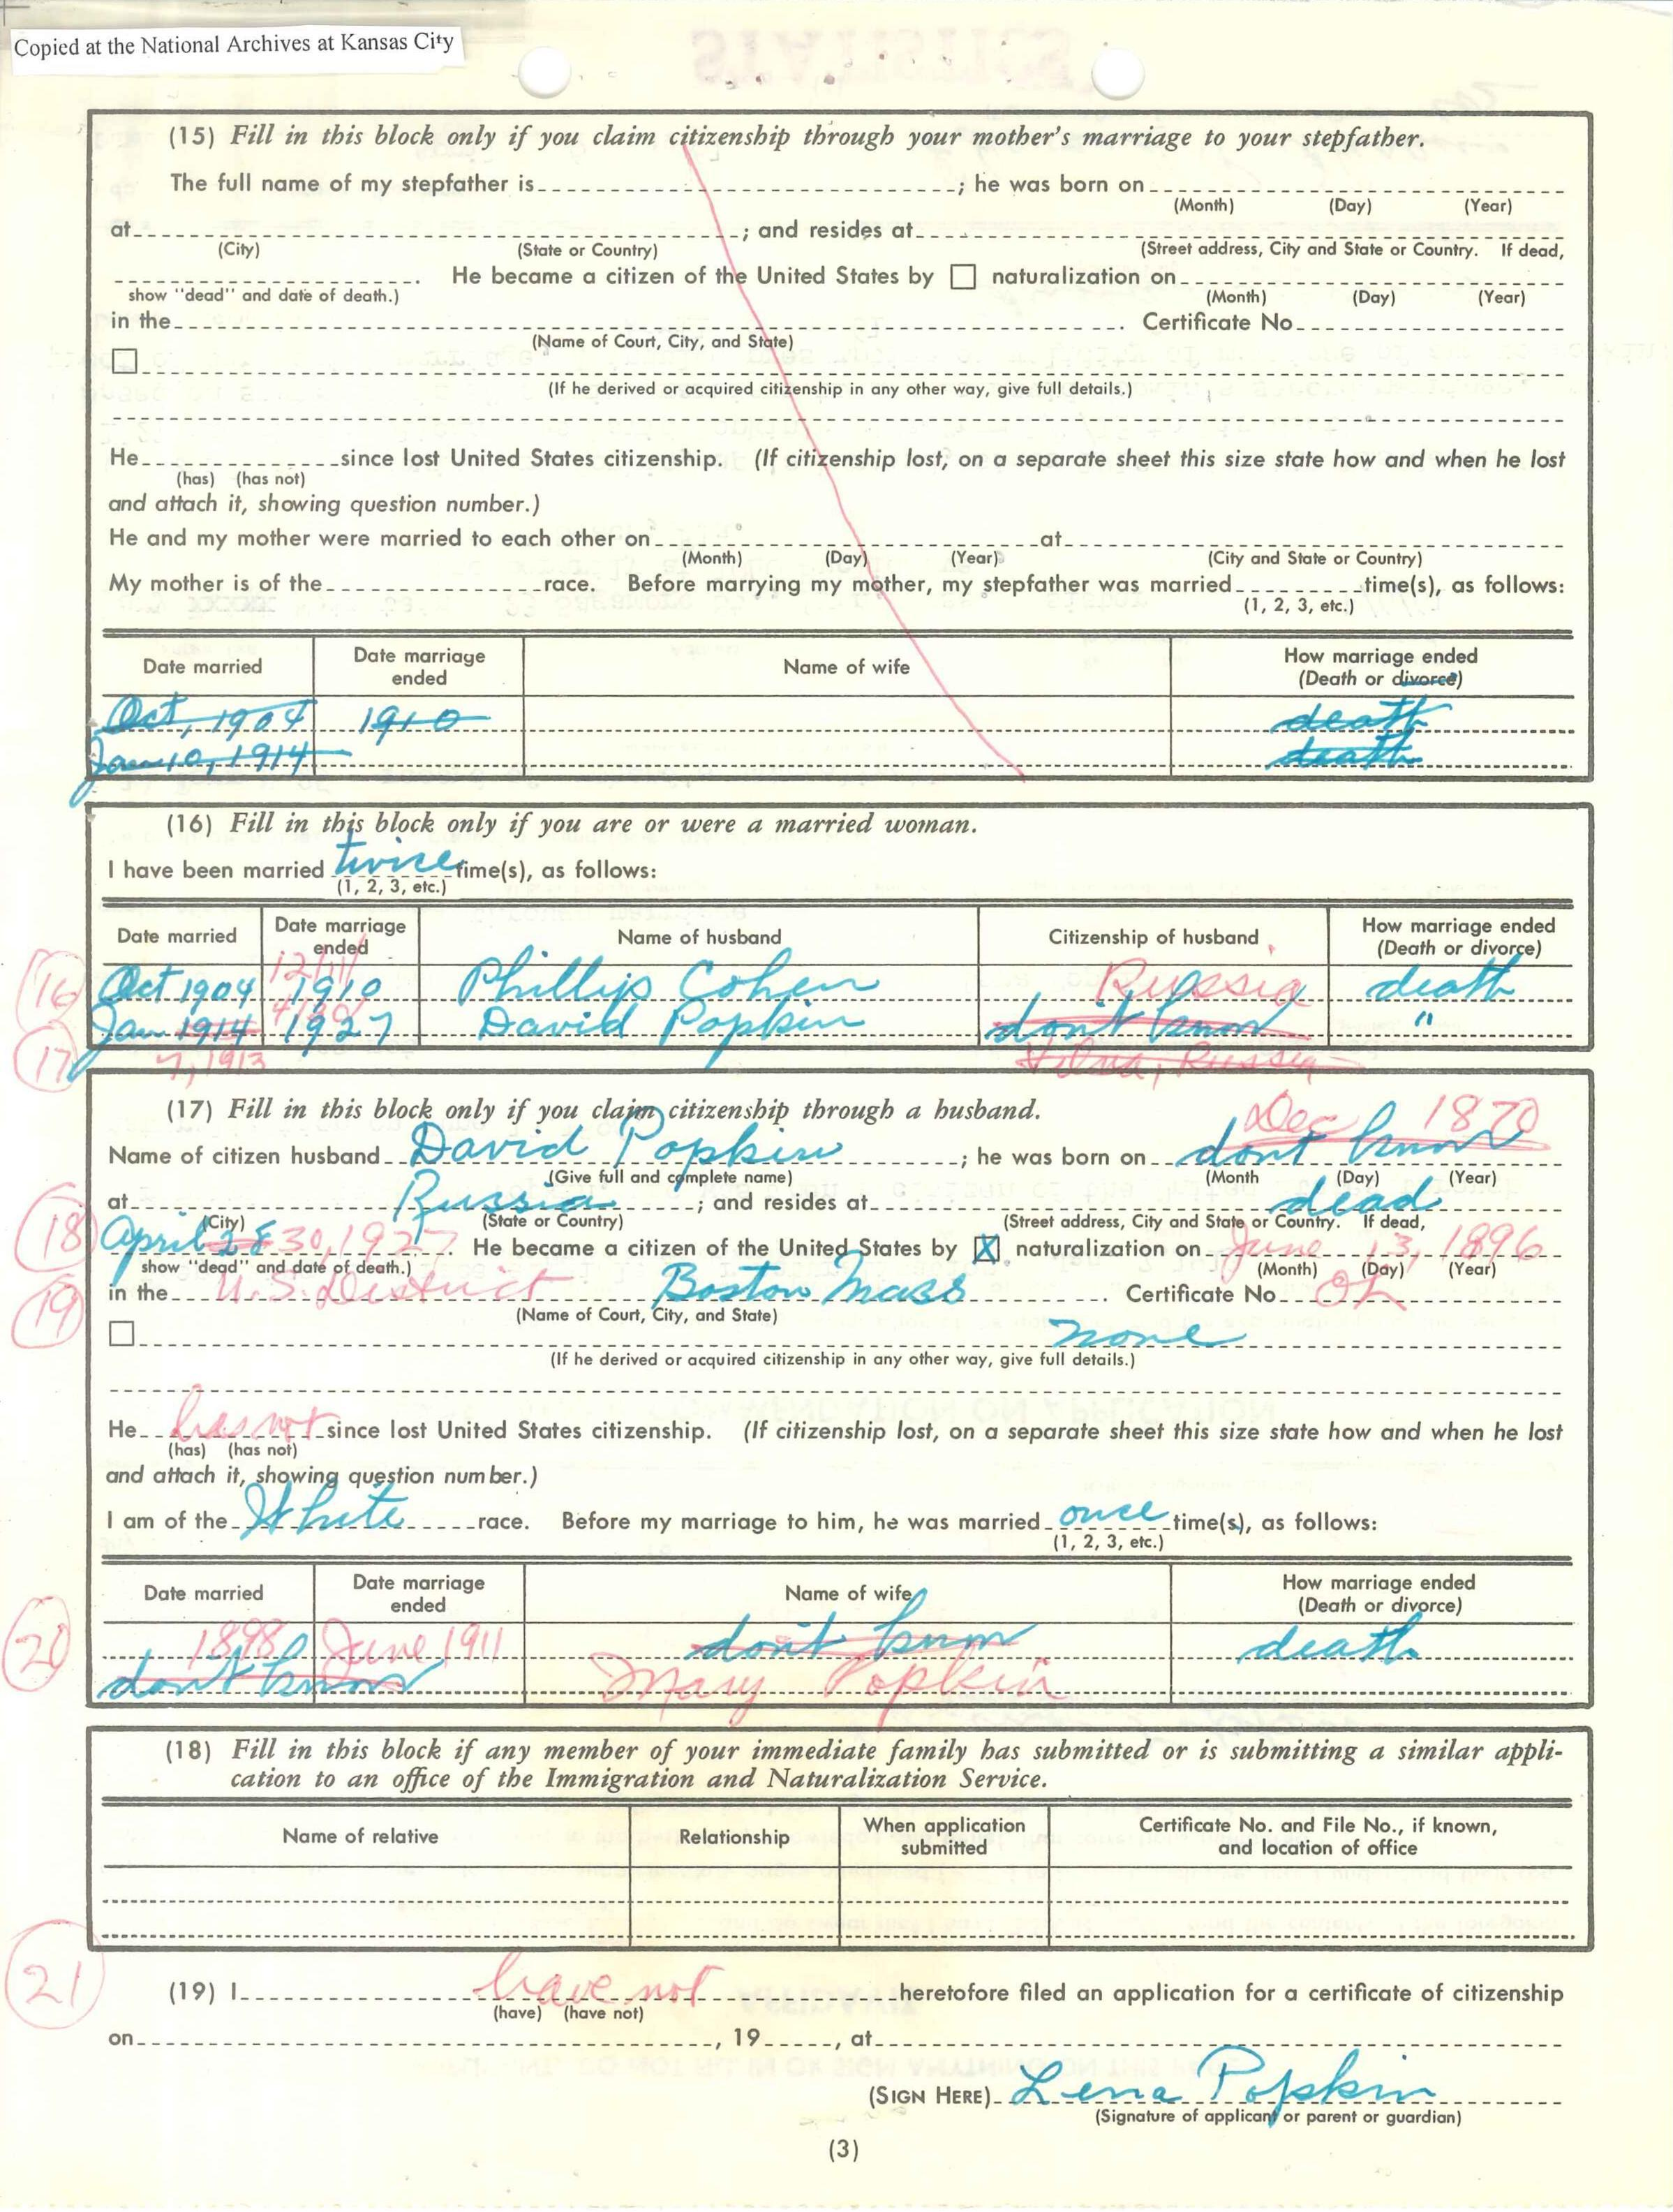 Copied at the National Archives at Kansas City
(15) Fill in this block only if you claim citizenship through your mother's marriage to your stepfather.
The full name of my stepfather is ; he was born on
(Month) (Day) (Year)
at ; and resides at
(City) (State or Country) (Street address, City and State or Country. If dead,
. He became a citizen of the United States by ☐ naturalization on
show "dead" and date of death.) (Month) (Day) (Year)
in the . Certificate No.
(Name of Court, City, and State)
☐
(If he derived or acquired citizenship in any other way, give full details.)
He since lost United States citizenship. (If citizenship lost, on a separate sheet this size state how and when he lost
(has) (has not)
and attach it, showing question number.)
He and my mother were married to each other on at
(Month) (Day) (Year) (City and State or Country)
My mother is of the race. Before marrying my mother, my stepfather was married time(s), as follows:
(1, 2, 3, etc.)
Date married Date marriage ended Name of wife How marriage ended (Death or divorce)
Oct, 1904 1910 death
Jan 10, 1914 death
(16) Fill in this block only if you are or were a married woman.
I have been married twice time(s), as follows:
(1, 2, 3, etc.)
Date married Date marriage ended Name of husband Citizenship of husband How marriage ended (Death or divorce)
16 Oct 1904 1910 Phillip Cohen Russia death
Jan 1914 1927 David Popkin dont know "
17 7, 1913 Vilna, Russia
(17) Fill in this block only if you claim citizenship through a husband.
Dec 1870
Name of citizen husband David Popkin ; he was born on dont know
(Give full and complete name) (Month (Day) (Year)
at Russia ; and resides at dead
(City) (State or Country) (Street address, City and State or Country. If dead,
18 April 28 30, 1927 . He became a citizen of the United States by ☒ naturalization on June 13, 1896
show "dead" and date of death.) (Month) (Day) (Year)
19 in the U.S. District Boston Mass . Certificate No.
(Name of Court, City, and State)
☐ none
(If he derived or acquired citizenship in any other way, give full details.)
He has not since lost United States citizenship. (If citizenship lost, on a separate sheet this size state how and when he lost
(has) (has not)
and attach it, showing question number.)
I am of the White race. Before my marriage to him, he was married once time(s), as follows:
(1, 2, 3, etc.)
Date married Date marriage ended Name of wife How marriage ended (Death or divorce)
20 1898 June 1911 don't know death
dont know Mary Popkin
(18) Fill in this block if any member of your immediate family has submitted or is submitting a similar appli-
cation to an office of the Immigration and Naturalization Service.
Name of relative Relationship When application submitted Certificate No. and File No., if known, and location of office
21 (19) I have not heretofore filed an application for a certificate of citizenship
(have) (have not)
on , 19 , at
(SIGN HERE) Lena Popkin
(Signature of applicant or parent or guardian)
(3)